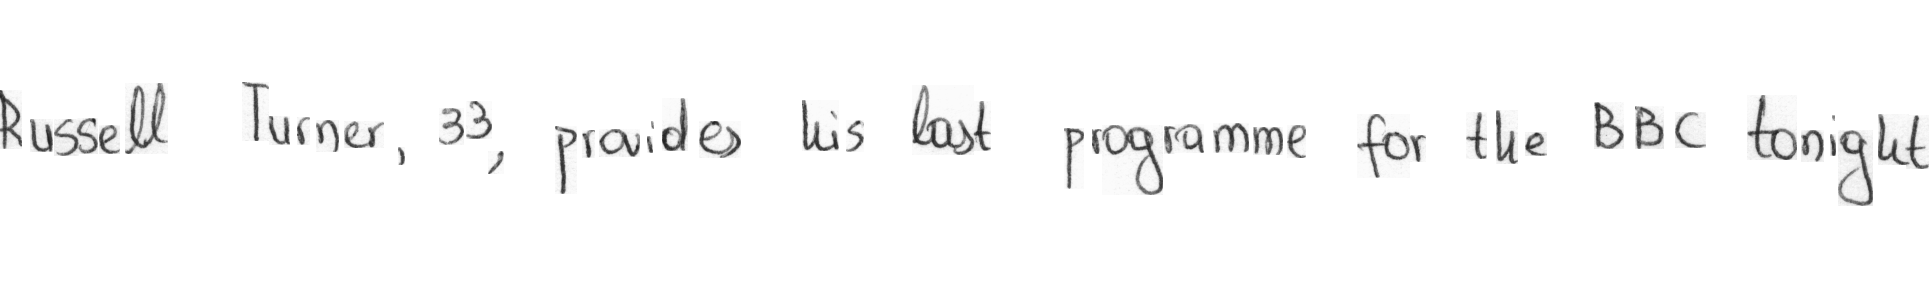 Russell Turner, 33, provides his last programme for the BBC tonight